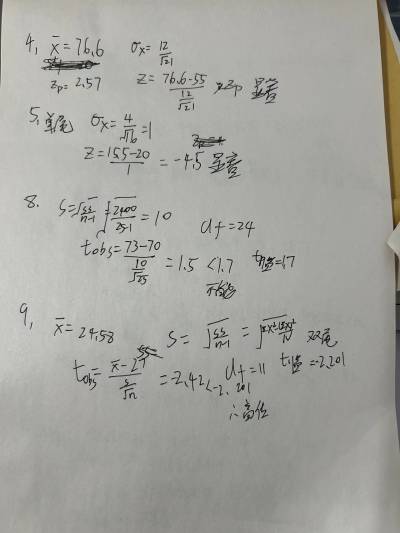 4, x̄ = 76.6 σx = 12/√21
zp = 2.57 z = (76.6-55)/(12/√21) > zp 显著
5, 单尾 σx = 4/√16 = 1
z = (15.5-20)/1 = -4.5 显著
8. S = √(SS/(n-1)) √(2400/(25-1)) = 10 df = 24
tobs = (73-70)/(10/√25) = 1.5 < 1.7 = 1.7
9, x̄ = 24.58 S = √(SS/(n-1)) = 双尾
tobs = = -2.42 < -2.201 df = 11 = -2.201
∴